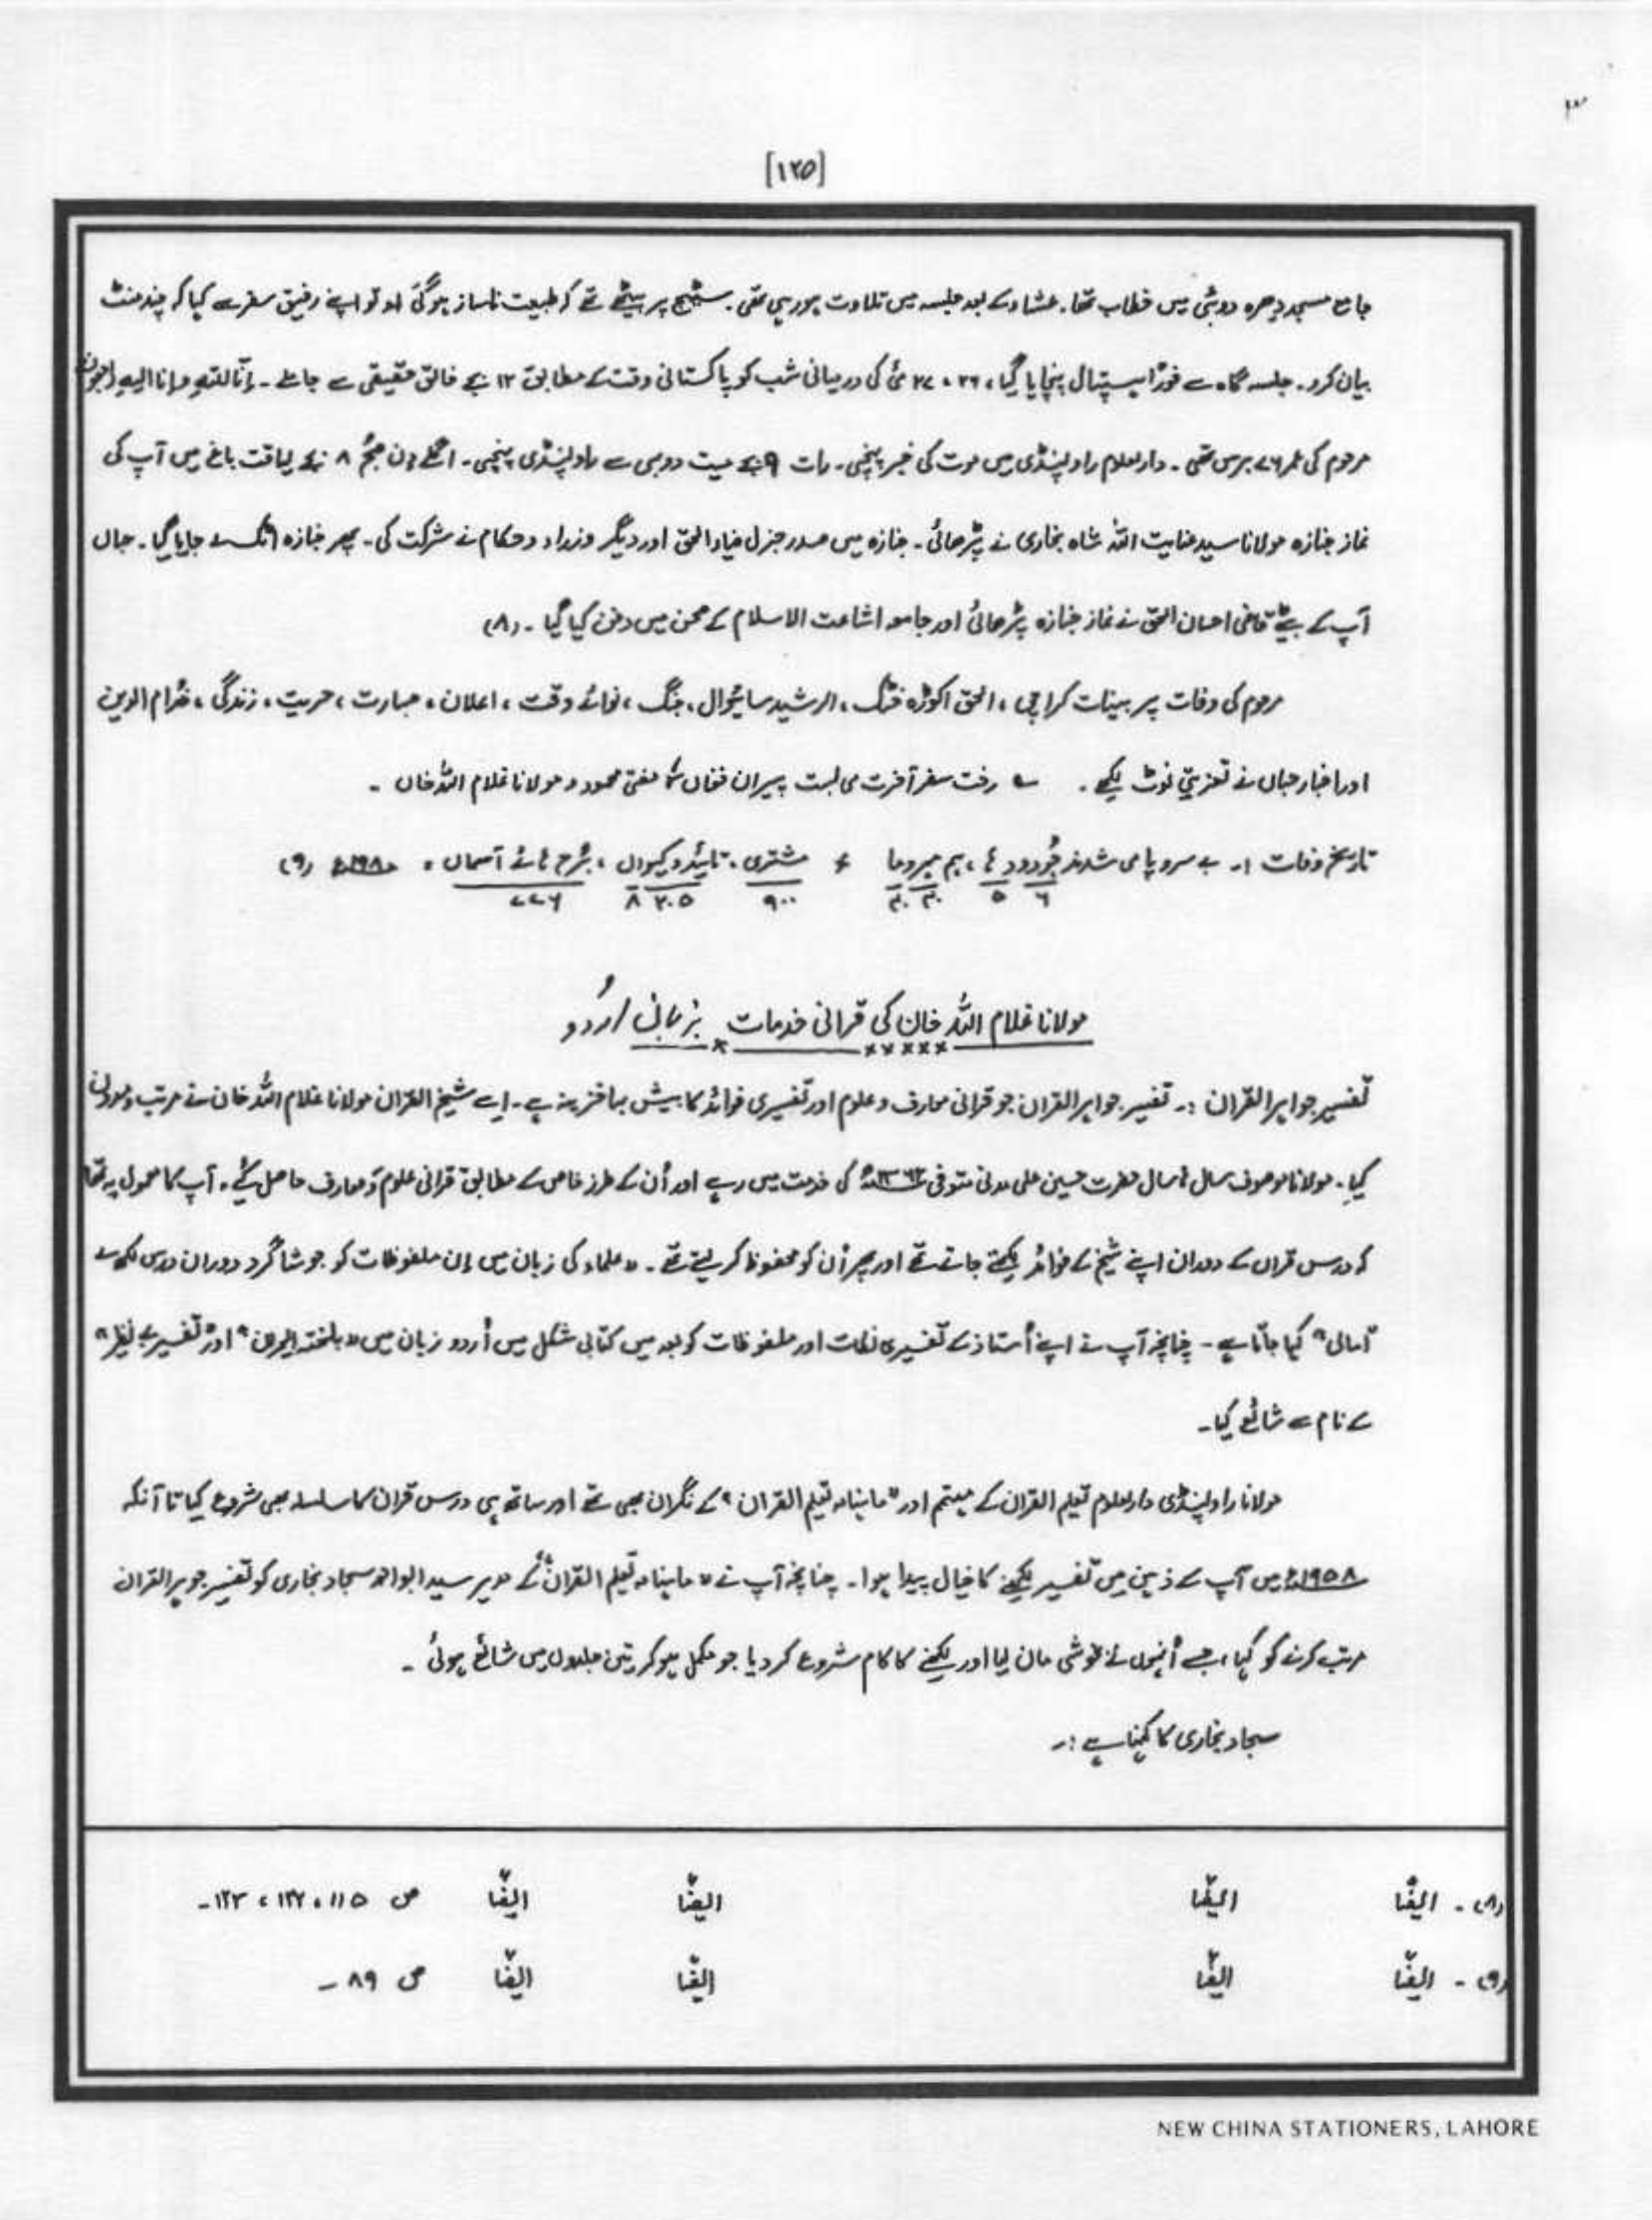 [۱۲۵]
جامع مسجد دیرہ دوبئی میں خطاب تھا۔ عشاء کے بعد جلسہ میں تلاوت ہو رہی تھی۔ سٹیج پر بیٹھے تھے کہ طبیعت ناساز ہوگئی تو اپنے رفیق سفر سے کہا کہ چند منٹ
بیان کرو۔ جلسہ گاہ سے فوراً ہسپتال پہنچایا گیا، ۲۶، ۲۷ مئی کی درمیانی شب کو پاکستانی وقت کے مطابق ۱۲ بجے خالق حقیقی سے جا ملے۔ إنّا للّٰہِ و إنا إلیہِ راجعون
مرحوم کی عمر ۷۶ برس تھی۔ دارلعلوم راولپنڈی میں موت کی خبر پہنچی۔ رات ۹ بجے میت دوبئی سے راولپنڈی پہنچی۔ اگلے دن صبح ۸ بجے لیاقت باغ میں آپ کی
نماز جنازہ مولانا سید عنایت اللہ شاہ بخاری نے پڑھائی۔ جنازہ میں صدر جنرل ضیاء الحق اور دیگر وزراء و حکام نے شرکت کی۔ پھر جنازہ اٹک لے جایا گیا۔ جہاں
آپ کے بیٹے قاضی احسان الحق نے نماز جنازہ پڑھائی اور جامعہ اشاعت الاسلام کے صحن میں دفن کیا گیا۔ (۸)
مرحوم کی وفات پر بینات کراچی، الحق اکوڑہ خٹک، الرشید ساہیوال، جنگ، نوائے وقت، اعلان، جسارت، حریت، زندگی، خدام الدین
اور اخبار جہاں نے تعزیتی نوٹ لکھے۔ رخت سفر آخرت می بست پیران فغاں مفتی محمود و مولانا غلام اللہ خاں ۔
تاریخ وفات :۔ بے سرو پا می شدند جُود و، ہم مہر و مشتری، و کیوان، برج ہائے آسماں، ۱۹۸۰ء (۹)
۶ ۵ ۹۰۰ ۸
مولانا غلام اللہ خان کی قرآنی خدمات بزبان اُردو
تفسیر جواہر القرآن :۔ تفسیر جواہر القرآن جو قرآنی معارف و علوم اور تفسیری فوائد کا بیش بہا خزینہ ہے۔ اسے شیخ القرآن مولانا غلام اللہ خان نے مرتب و مدون
کیا۔ مولانا موصوف سال ہا سال حضرت حسین علی متوفی ۱۳۶۳ھ کی خدمت میں رہے اور اُن کے طرز خاص کے مطابق قرآنی علوم و معارف حاصل کیے۔ آپ کا معمول یہ تھا
کہ درس قرآن کے دوران اپنے شیخ کے فوائد لکھتے جاتے تھے اور پھر اُن کو محفوظ کر لیتے تھے۔ علماء کی زبان میں اِن ملفوظات کو جو شاگرد دوران درس لکھ لے
"امالی" کہا جاتا ہے۔ چنانچہ آپ نے اپنے اُستاذ کے تفسیری نکات اور ملفوظات کو بعد میں کتابی شکل میں اُردو زبان میں "بلغتہ الحیران" اور "تفسیر بے نظیر"
کے نام سے شائع کیا۔
مولانا راولپنڈی دارلعلوم تعلیم القرآن کے مہتمم اور "ماہنامہ تعلیم القرآن" کے نگران بھی تھے اور ساتھ ہی درس قرآن کا سلسلہ بھی شروع کیا تا آنکہ
۱۹۵۸ء میں آپ کے ذہن میں تفسیر لکھنے کا خیال پیدا ہوا۔ چنانچہ آپ نے "ماہنامہ تعلیم القرآن" کے مدیر سید ابو احمد سجاد بخاری کو تفسیر جواہر القرآن
مرتب کرنے کو کہا، جسے اُنہوں نے بخوشی مان لیا اور لکھنے کا کام شروع کر دیا جو مکمل ہو کر تین جلدوں میں شائع ہوئی ۔
سجاد بخاری کا کہنا ہے :۔
(۸)۔ ایضًا ایضًا ایضًا ایضًا ص ۱۱۵، ۱۲۲، ۱۲۳۔
(۹)۔ ایضًا ایضًا ایضًا ایضًا ص ۸۹۔
NEW CHINA STATIONERS, LAHORE